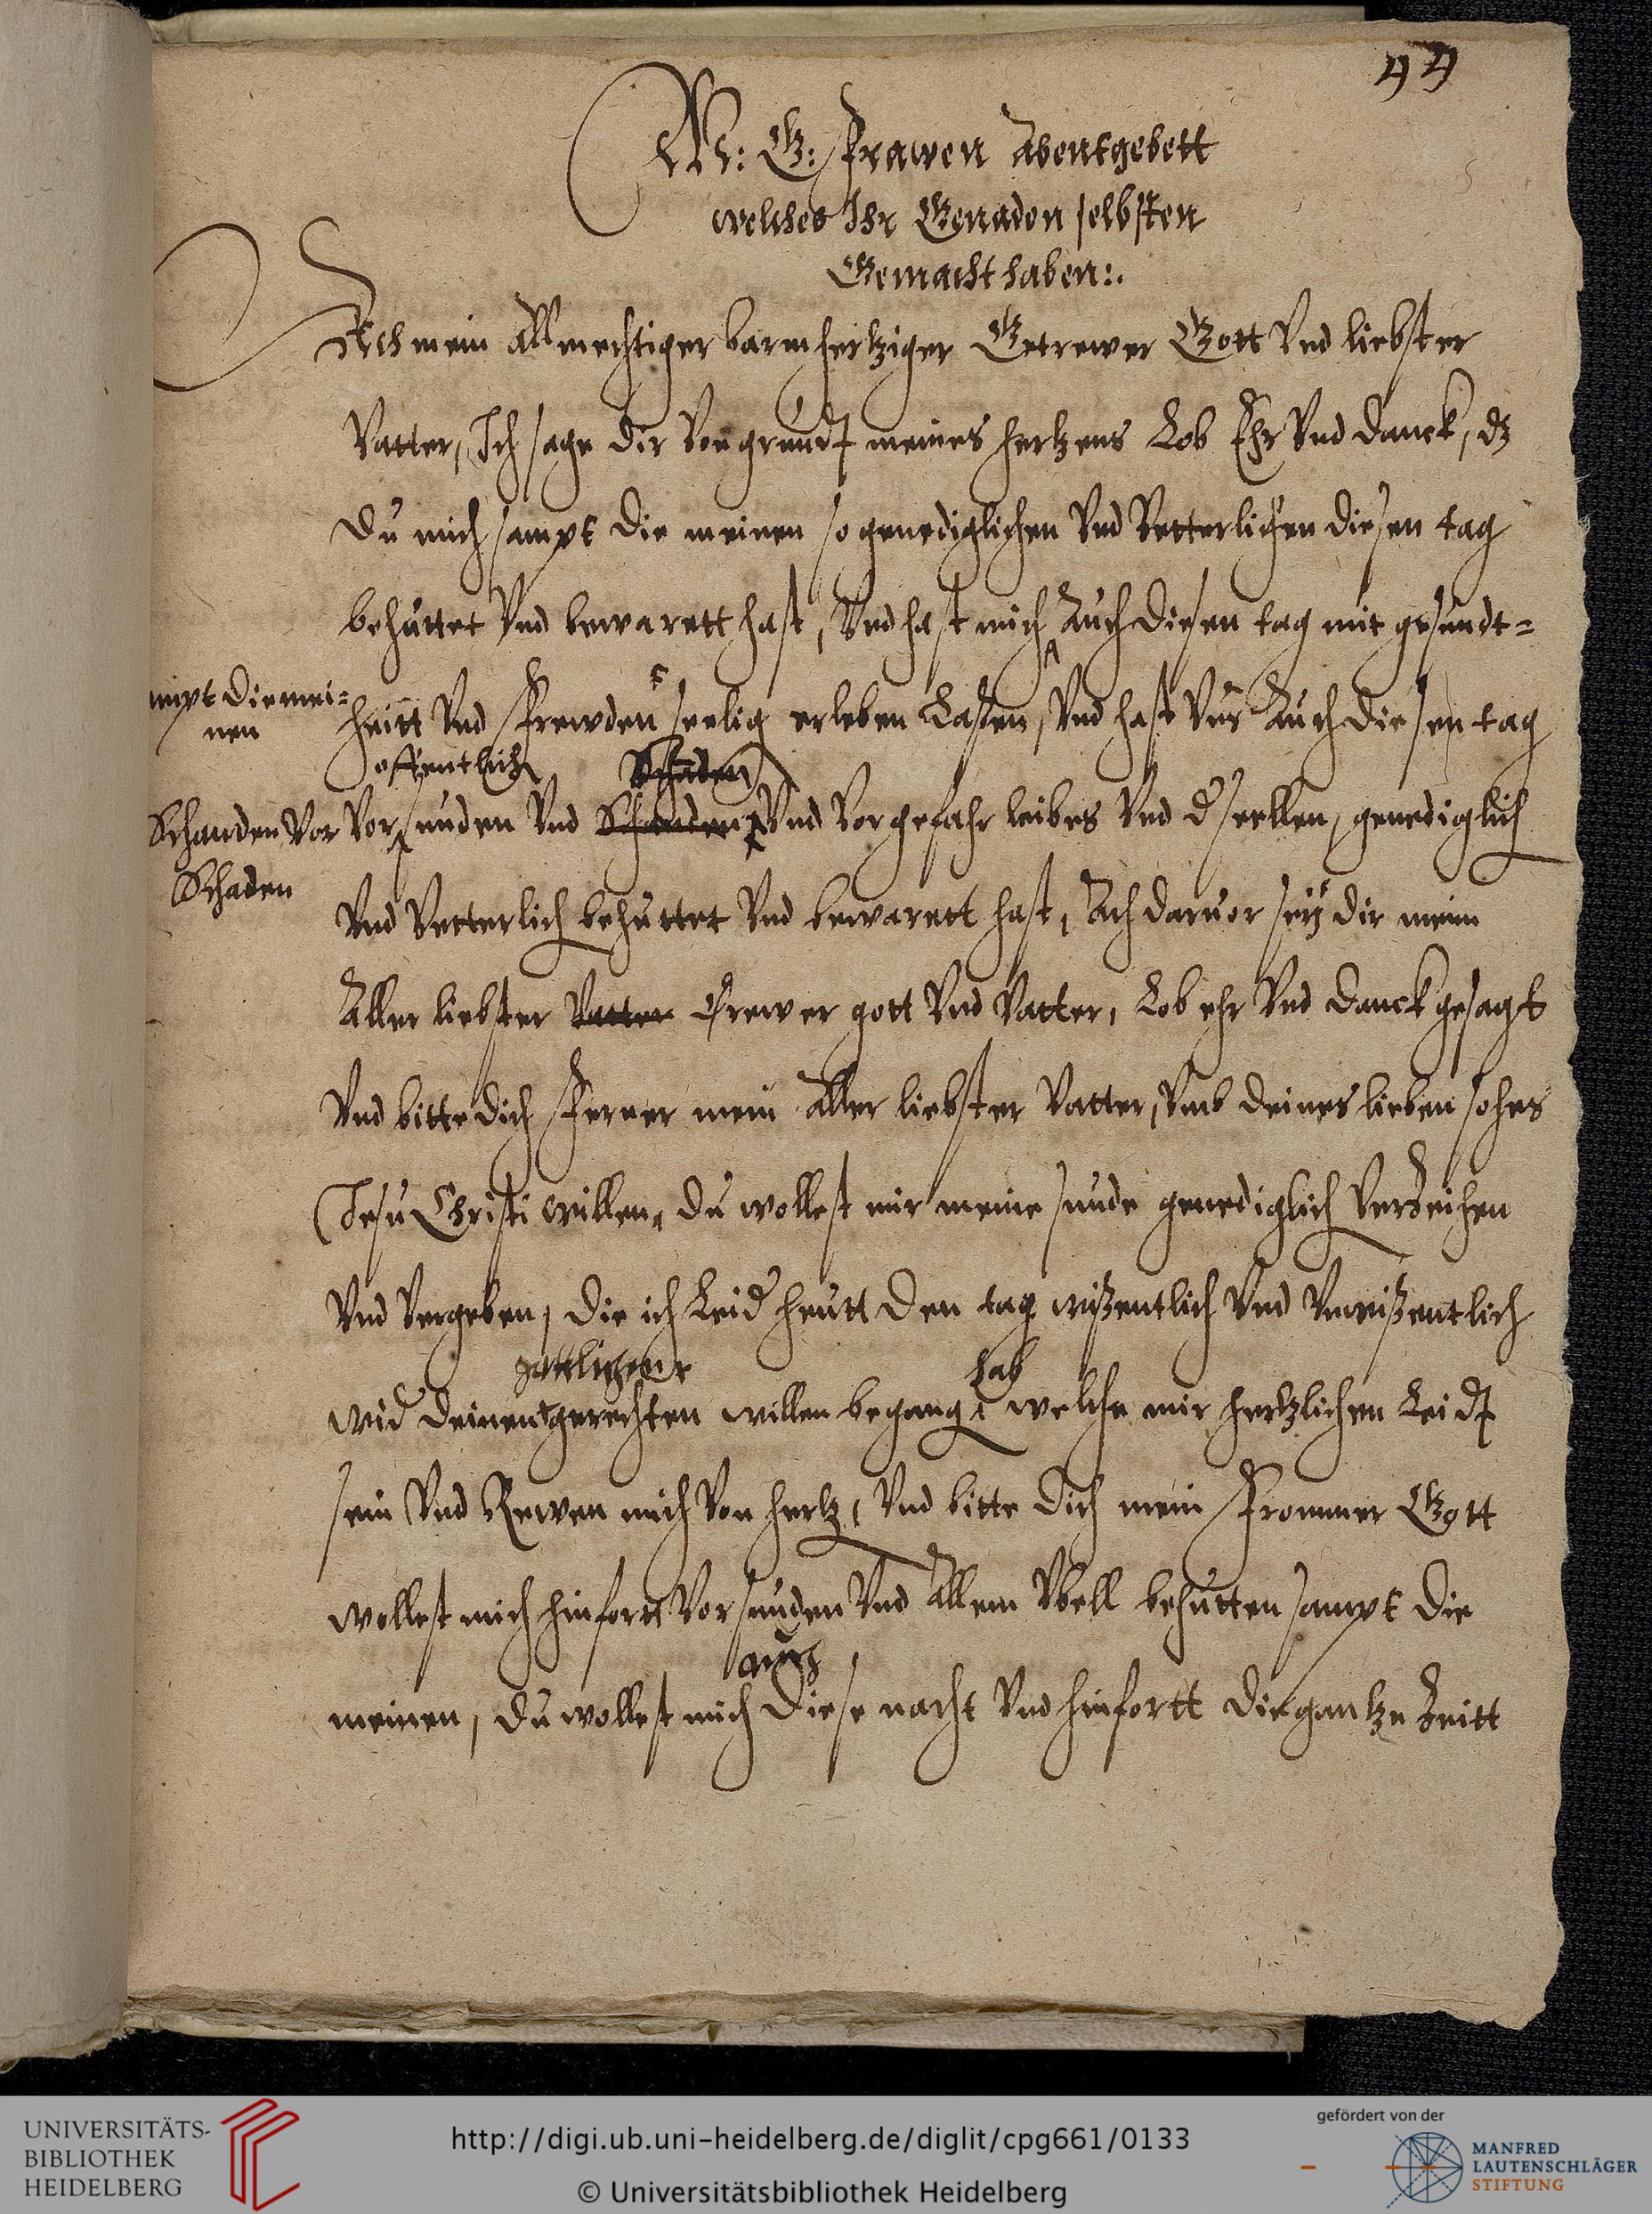 44
M: G: Frawen Abentgebett
welches Ihr Genaden selbsten
Gemacht haben:.
Ach mein Allmechtiger barmhertziger Getrewer Gott Vnd liebster
Vatter, Ich sage dir Von grundt meines hertzens Lob Ehr Vnd danck, dz
du mich sampt die meinen so genediglichen Vnd Vetterlichen diesen tag
behuttet Vnd bewarett hast, Vnd hast mich Auch diesen tag mit gesundt=
mpt die mei=
nen
heitt Vnd Frewden seelig erleben Lassen, Vnd hast Auch diesen tag
offentlich Schaden
Schanden Vor
Schaden
Vor sunden Vnd Schanden Vnd Vor gefahr leibes Vnd d seellen, genediglich
Vnd Vetterlich behuttet Vnd bewarett hast, Ach daruor sey dir mein
Aller liebster Vatter Trewer gott Vnd Vatter, Lob ehr Vnd danck gesagt
Vnd bitte dich Ferner mein Aller liebster Vatter, Vmb deines lieben sohns
Jesu Christi willen, du wollest mir meine sunde genediglich Verzeihen
Vnd Vergeben, die ich Leid heutt den tag wißentlich Vnd Vnwißentlich
gottlichen
hab
wid deinen gerechten willen begang welche mir hertzlichen Leidt
sein Vnd Rewen mich Von hertz, Vnd bitte dich mein Frommer Gott
wollest mich hinfort Vor sunden Vnd Allem Vbell behutten sampt die
auch
meinen, du wollest mich diese nacht Vnd hinfortt die gantze Zeitt
UNIVERSITÄTS-
BIBLIOTHEK
HEIDELBERG
http://digi.ub.uni-heidelberg.de/diglit/cpg661/0133
© Universitätsbibliothek Heidelberg
gefördert von der
MANFRED
LAUTENSCHLÄGER
STIFTUNG